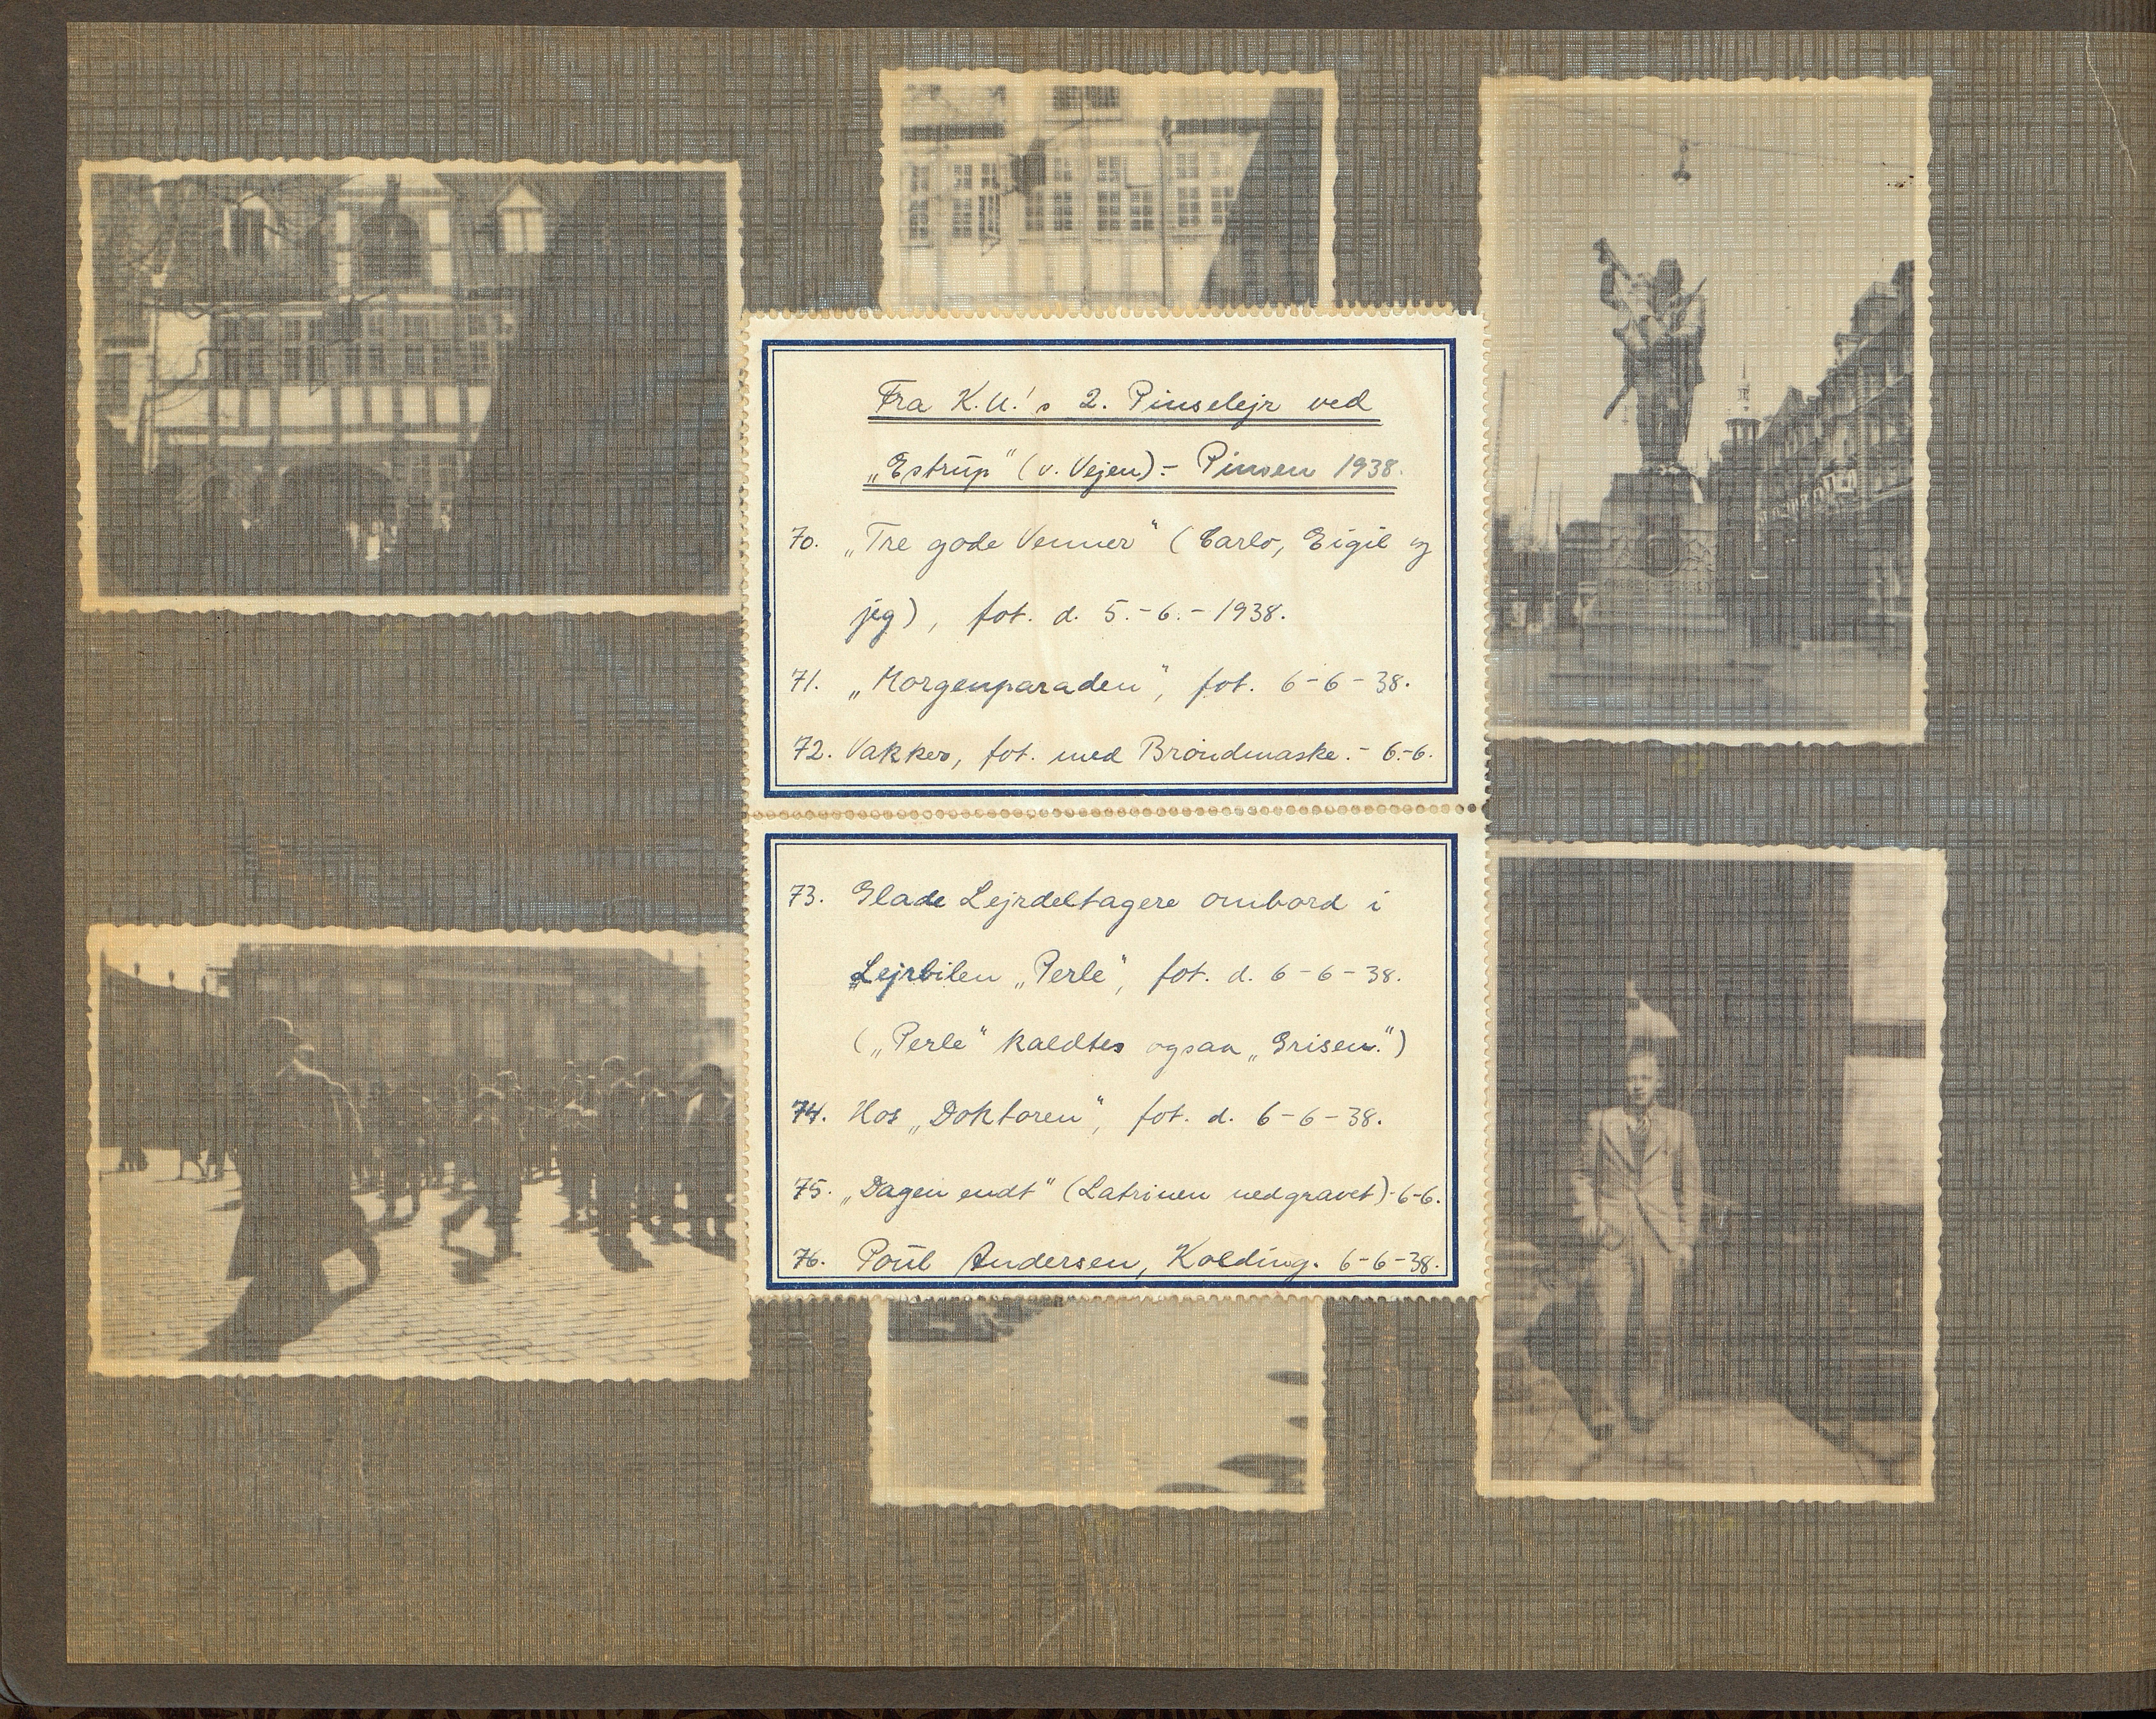 Fra K.U.'s 2. Pinselejr ved
„Estrup" (v. Vejen).- Pinsen 1938.
70. „Tre gode Venner" (Carlo, Eigil og
jeg), fot. d. 5.-6.-1938.
71. „Morgenparaden", fot. 6-6-38.
72. Vakker, fot. med Brøndmaske.- 6.-6.
73. Glade Lejrdeltagere ombord i
Lejrbilen „Perle", fot. d. 6-6-38.
(„Perle" kaldtes ogsaa „Grisen.")
74. Hos „Doktoren", fot. d. 6-6-38.
75. „Dagen endt" (Latrinen nedgravet)-6-6.
76. Poul Andersen, Kolding. 6-6-38.